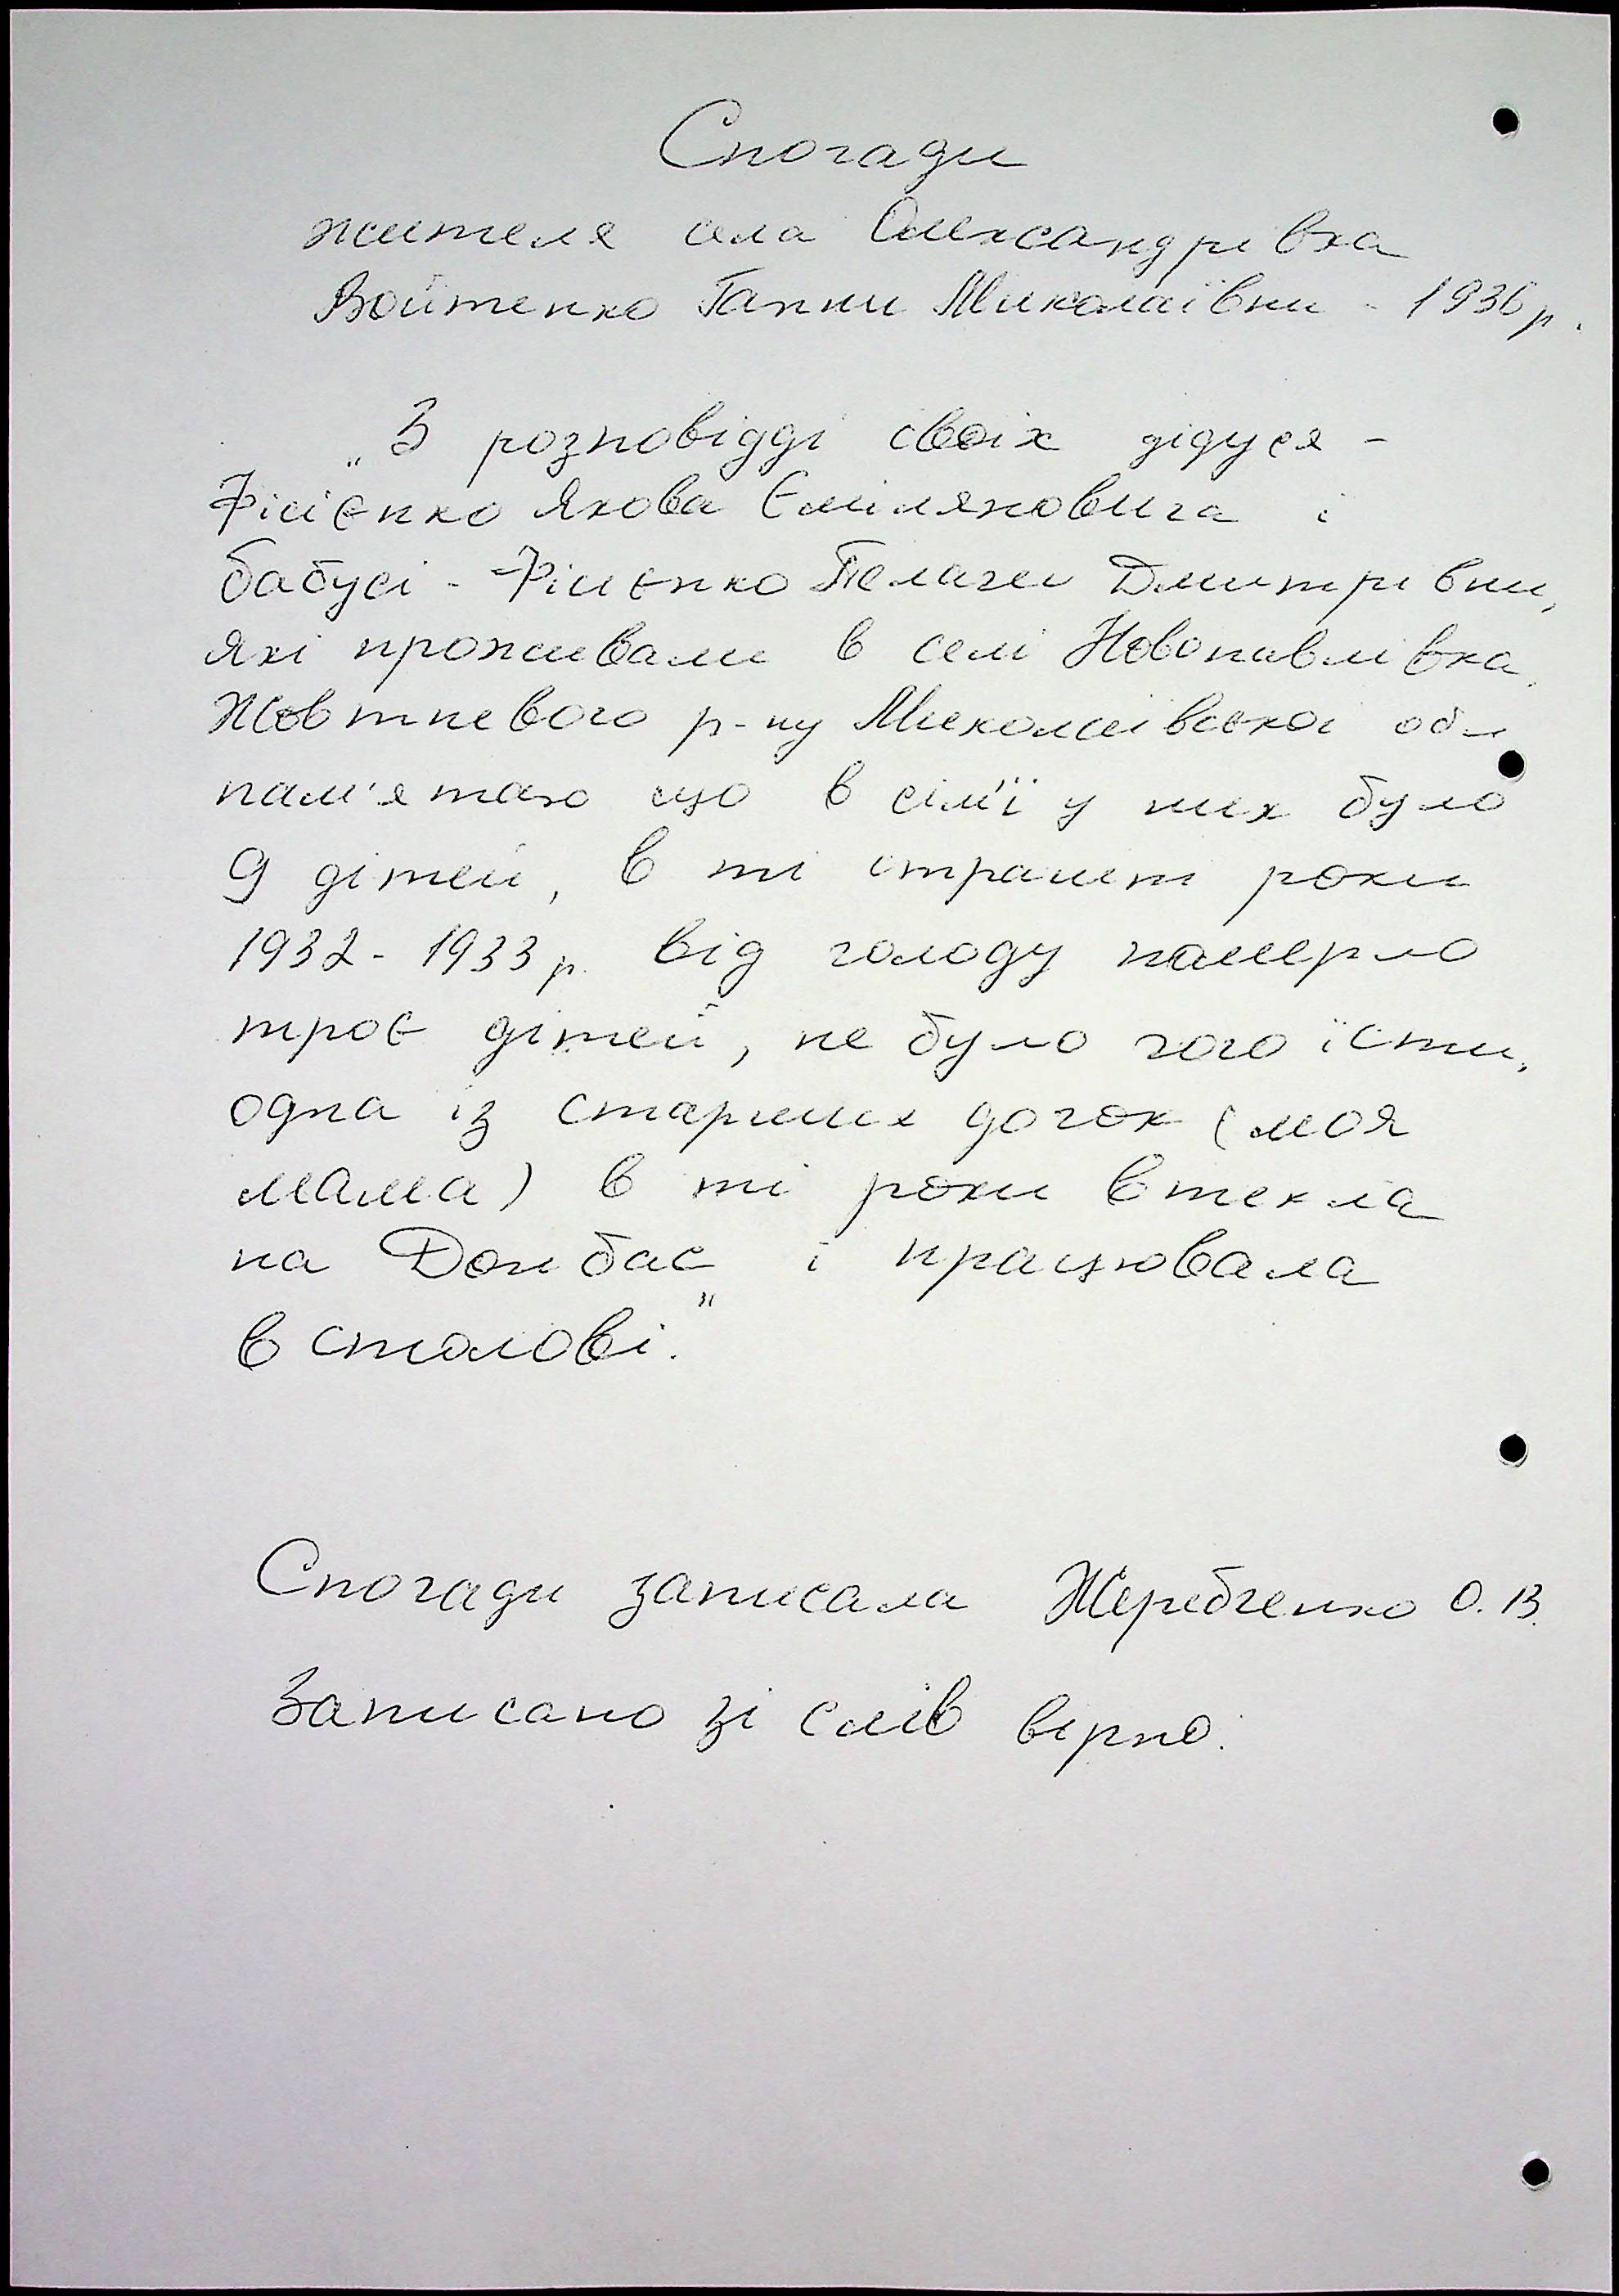 Спогади
жителя села Олександрівка
Войтенко Ганни Миколаївни - 1936 р.
„З розповідді своїх дідуся -
Якова Єміляновича і
бабусі - Пелагеи Дмитрівни,
які проживали в селі Новопавлівка
Жовтневого р-ну Миколаївської обл
пам'ятаю що в сім'ї у них було
9 дітей, в ті страшні роки
1932 - 1933 р. від голоду померло
троє дітей, не було чого їсти,
одна із старших дочок (моя
мама) в ті роки втекла
на Донбас і працювала
в столові."
Спогади записала Жеребченко О. В.
Записано зі слів вірно.